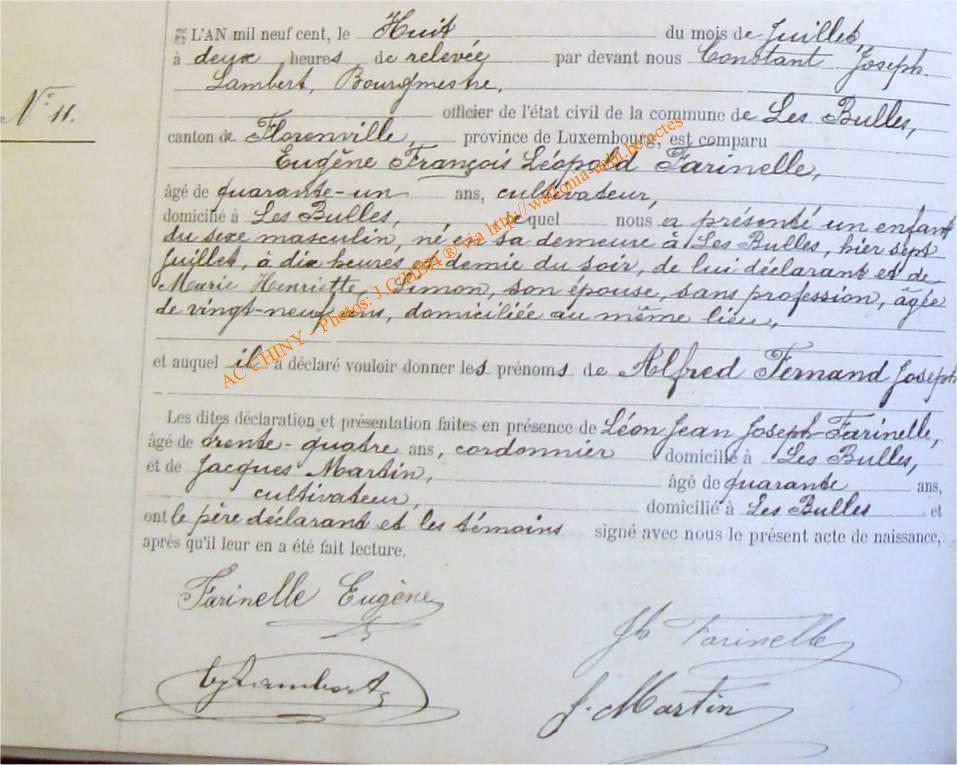 L'AN mil neuf cent, le Huit du mois de Juillet,
à deux heures de relevée par devant nous Constant Joseph
Lambert, Bourgmestre,
N° 11.
officier de l'état civil de la commune de Les Bulles,
canton de Florenville, province de Luxembourg, est comparu
Eugène François Léopold Farinelle,
âgé de quarante-un ans, cultivateur,
domicilié à Les Bulles, lequel nous a présenté un enfant
du sexe masculin, né en sa demeure à Les Bulles, hier sept
Juillet, à dix heures et demie du soir, de lui déclarant et de
Marie Henriette, Simon, son épouse, sans profession, âgée
de vingt-neuf ans, domiciliée au même lieu,
et auquel il a déclaré vouloir donner les prénoms de Alfred Fernand Joseph
Les dites déclaration et présentation faites en présence de Léon Jean Joseph Farinelle,
âgé de trente-quatre ans, cordonnier domicilié à Les Bulles,
et de Jacques Martin, âgé de quarante ans,
cultivateur, domicilié à Les Bulles et
ont le père déclarant et les témoins signé avec nous le présent acte de naissance,
après qu'il leur en a été fait lecture.
Farinelle Eugène
Jh Farinelle
Lambert
J. Martin
AC CHINY - Photos: J.C. via http://wallonia-asbl.be/actes